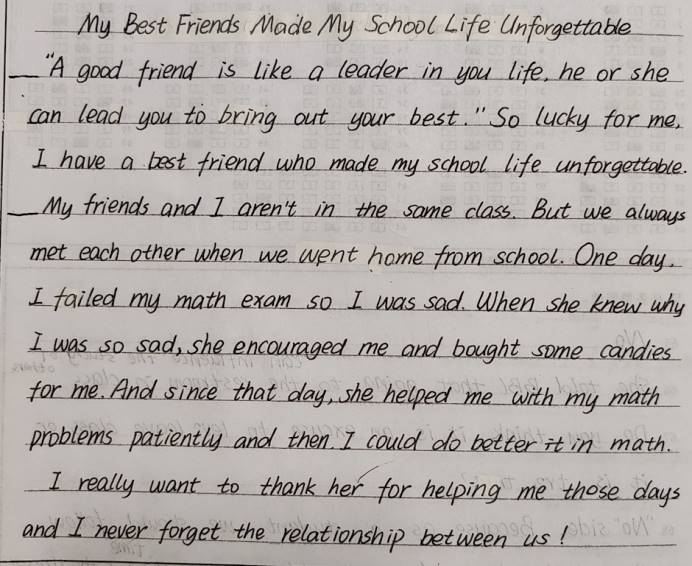 My Best Friends Made My School Life Unforgettable
"A good friend is like a leader in you life, he or she
can lead you to bring out your best." So lucky for me,
I have a best friend who made my school life unforgettable.
My friends and I aren't in the same class. But we always
met each other when we went home from school. One day,
I failed my math exam so I was sad. When she knew why
I was so sad, she encouraged me and bought some candies
for me. And since that day, she helped me with my math
problems patiently and then. I could do better it in math.
I really want to thank her for helping me those days
and I never forget the relationship between us!